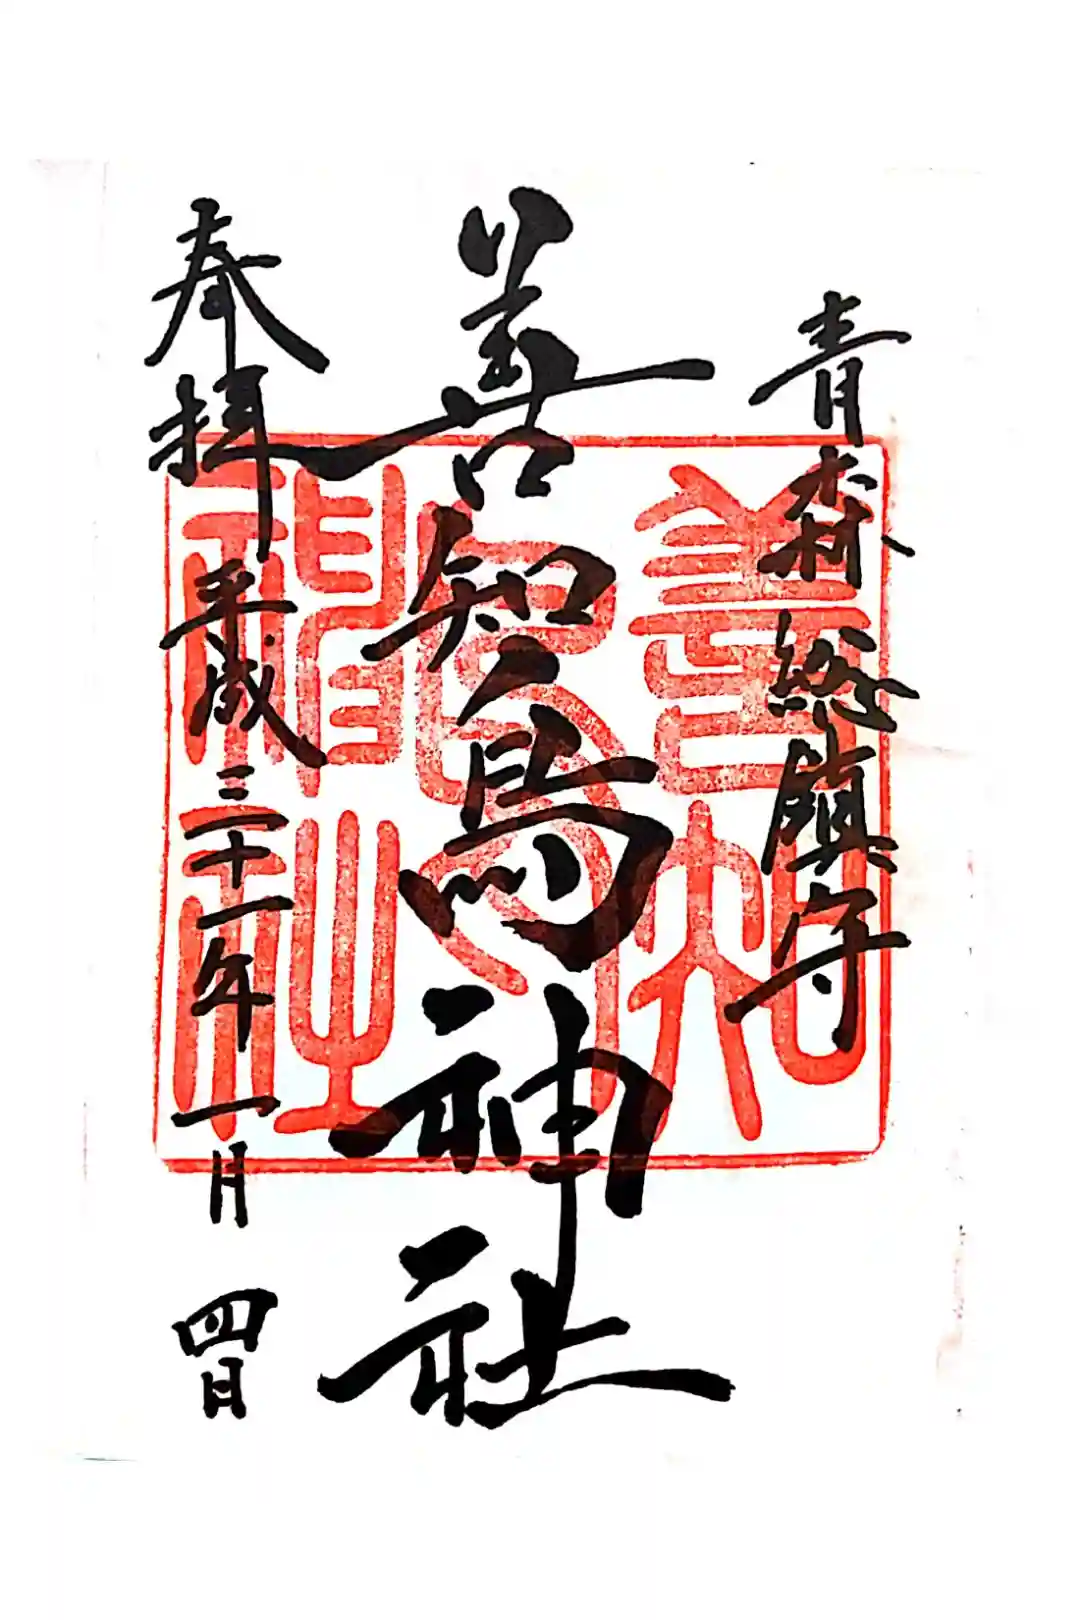 青森総鎮守
善知鳥神社
奉拝 平成三十一年一月四日
善知鳥神社